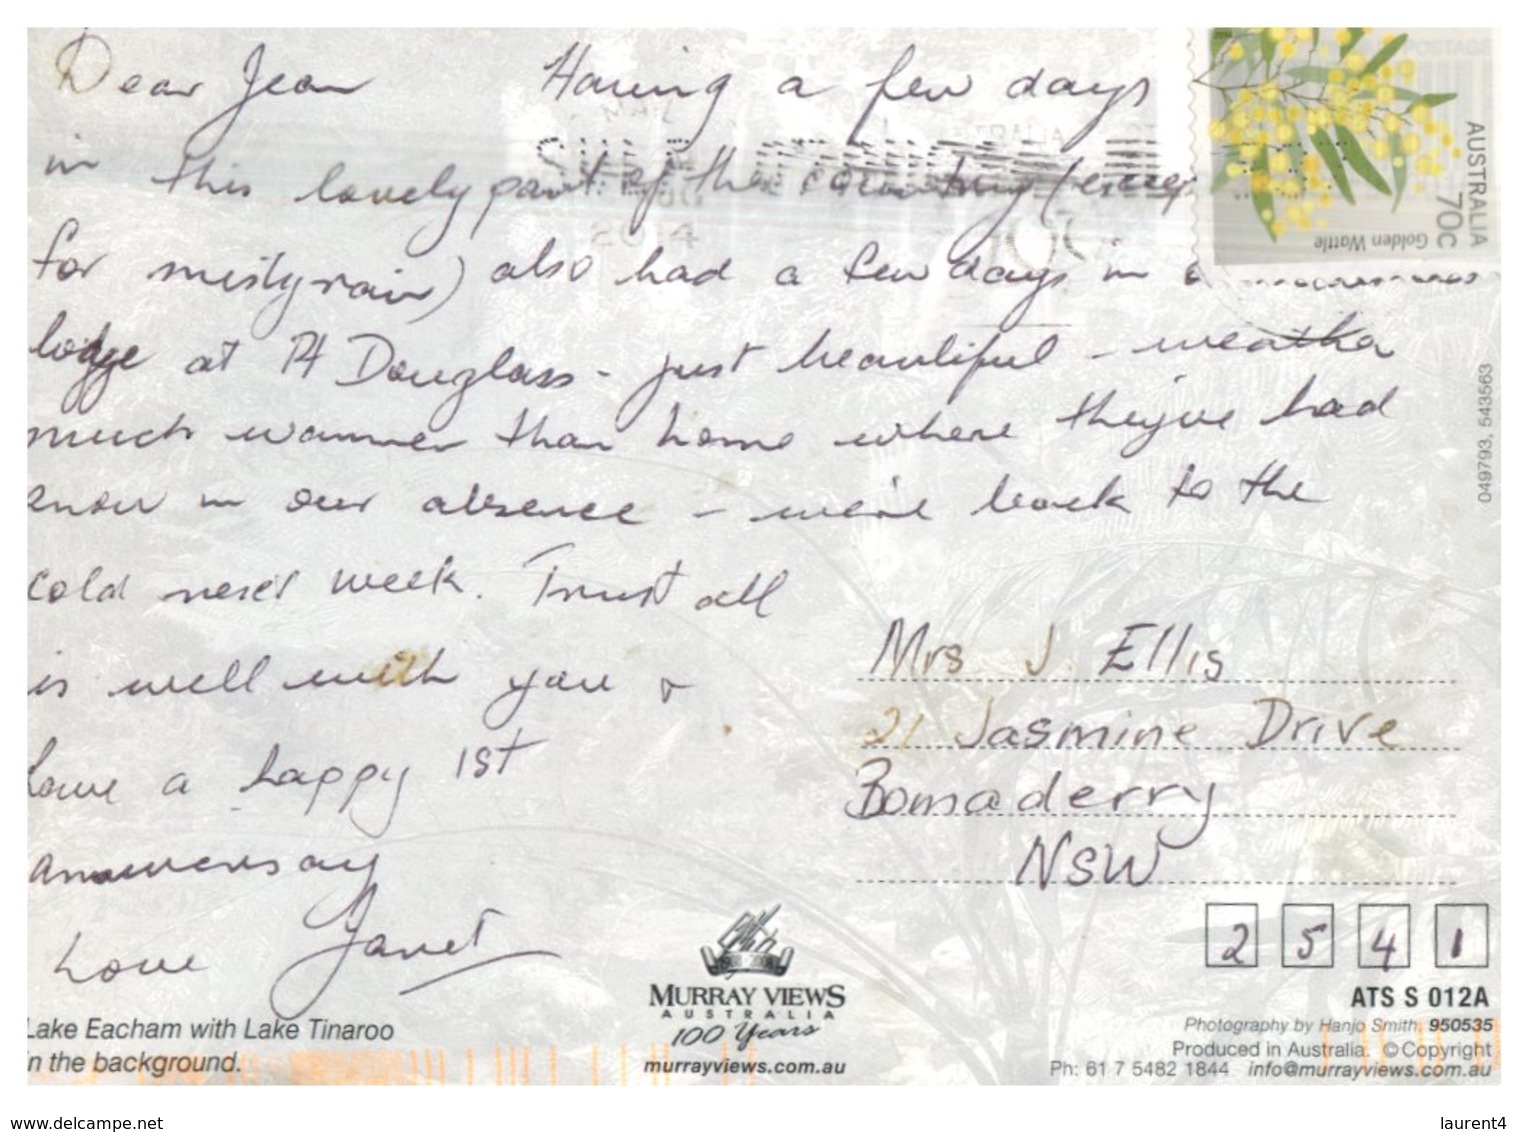 Dear Jean Having a few days
in this lovely part of the country (excep
for misty rain) also had a few days in a
lodge at Pt Douglass - just beautiful - weather
much warmer than home where they've had
snow in our absence - we're back to the
cold next week. Trust all
is well with you &
have a happy 1st
anniversary
Love Janet
Mrs J Ellis
21 Jasmine Drive
Bomaderry
NSW
2 5 4 1
AUSTRALIA
70c
Golden Wattle
2014
049793, 543563
Lake Eacham with Lake Tinaroo
in the background.
MURRAY VIEWS
AUSTRALIA
100 Years
murrayviews.com.au
ATS S 012A
Photography by Hanjo Smith. 950535
Produced in Australia. © Copyright
Ph: 61 7 5482 1844 info@murrayviews.com.au
www.delcampe.net
laurent4